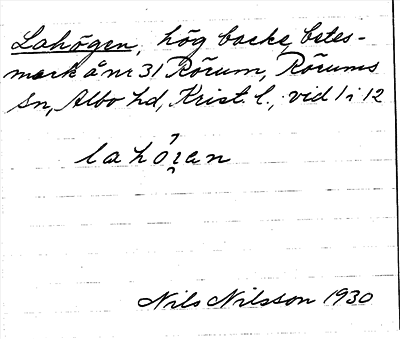 Lahögen, hög backe, betes-
mark å nr 31 Rörum, Rörums
sn, Albo hd, Krist. l., vid 1 i 12
lahö́ʒ̨an
Nils Nilsson 1930